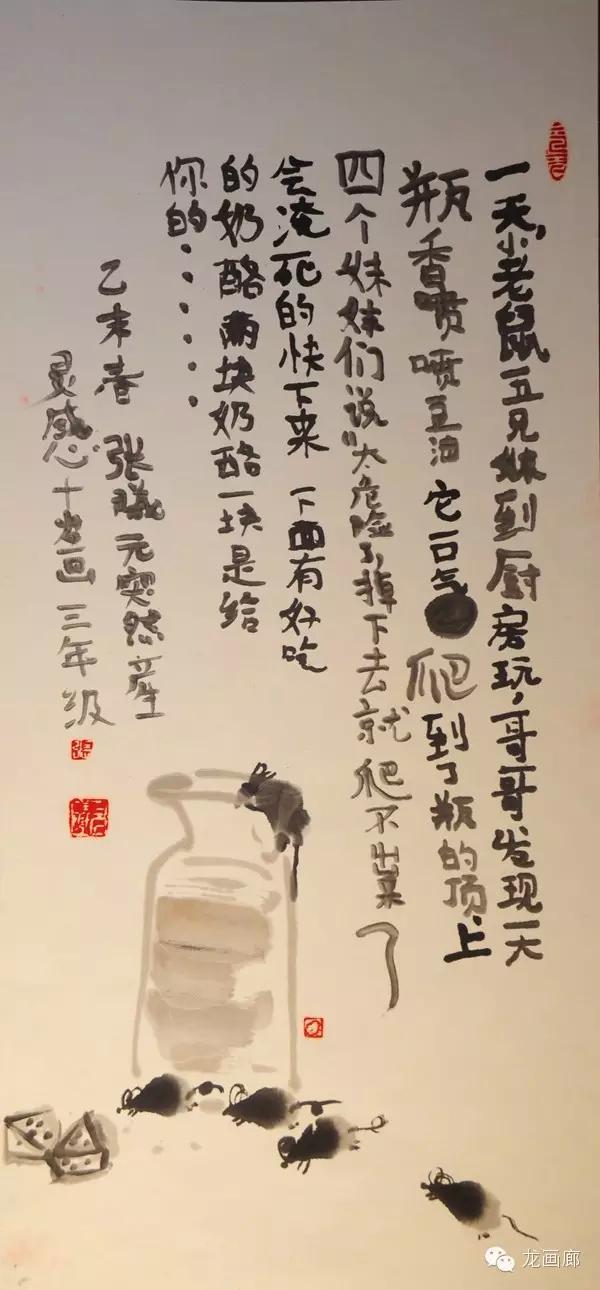 一天,小老鼠五兄妹到厨房玩,哥哥发现一大
瓶香喷喷豆油它一口气爬到了瓶的顶上
四个妹妹们说“太危险了,掉下去就爬不出来了
会淹死的快下来 下面有好吃
的奶酪两块奶酪一块是给
你的·····
乙未春 张曦元突然产生
灵感 十岁画 三年级
龙画廊